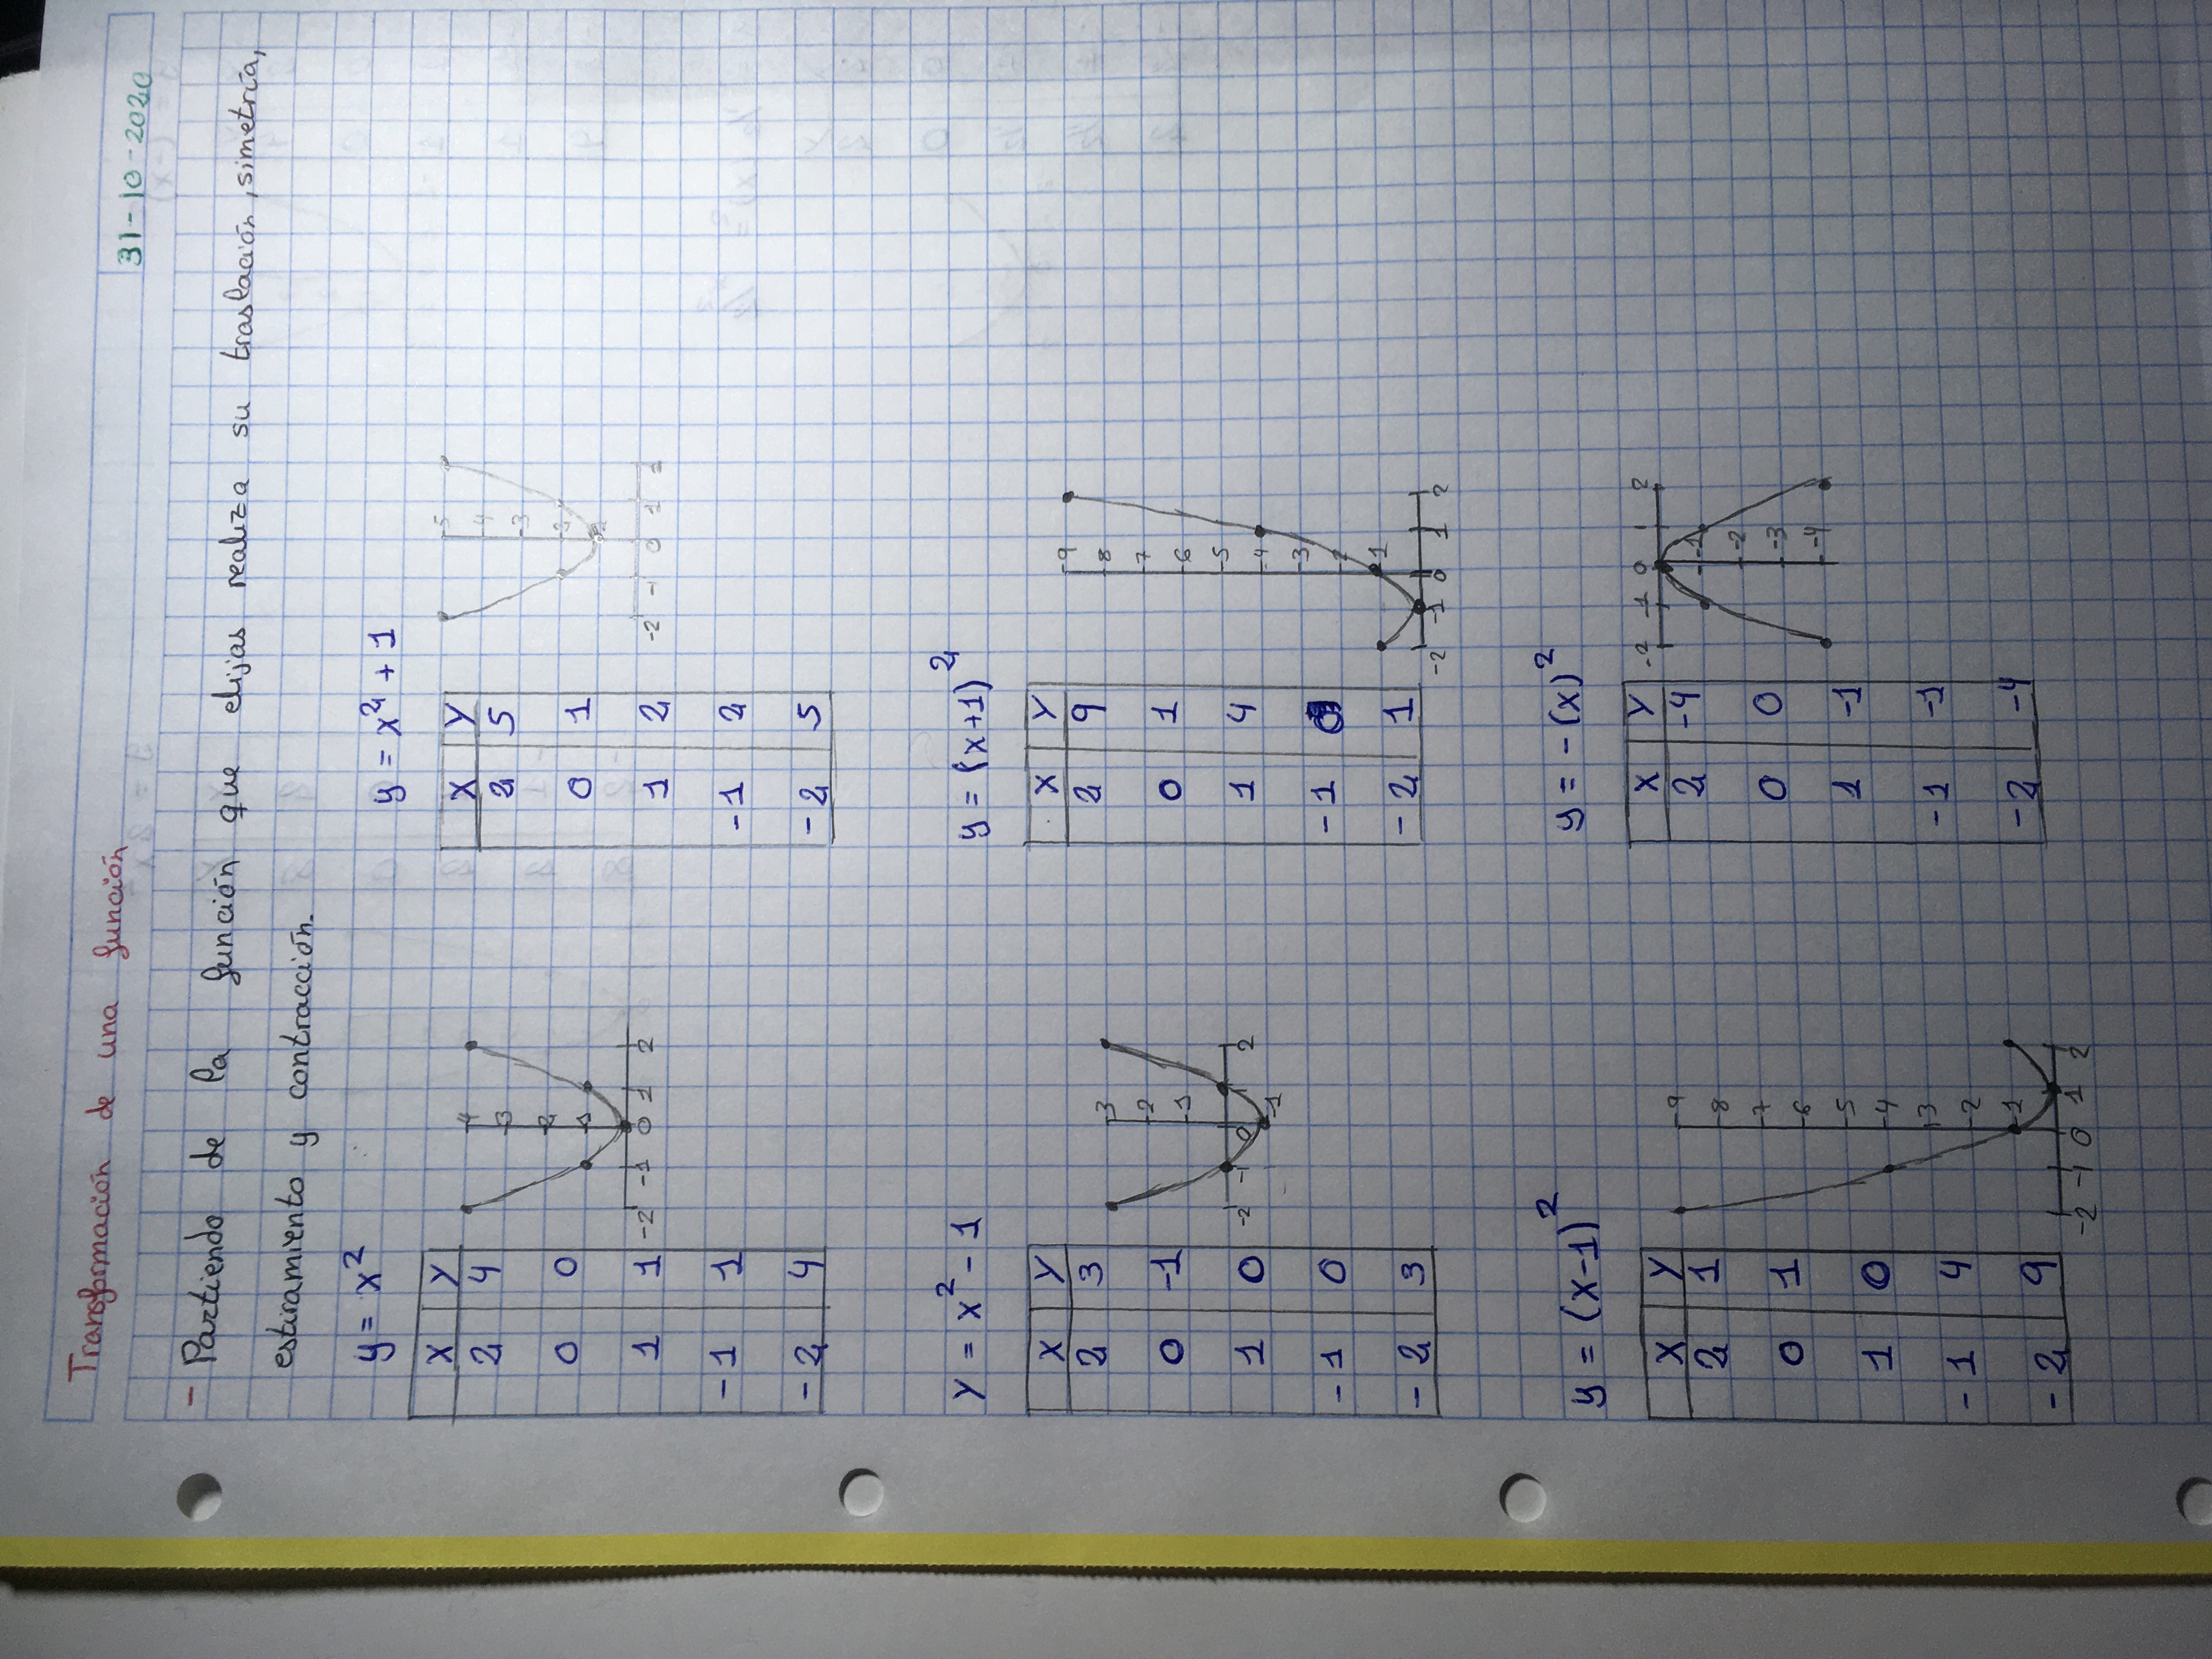 Transformación de una función
31-10-2020
- Partiendo de la función que elijas realiza su traslación, simetría,
estiramiento y contracción.
y = x²
X Y
2 4
0 0
1 1
-1 1
-2 4
4
3
2
1
-2 -1 0 1 2
y = x² + 1
X Y
2 5
0 1
1 2
-1 2
-2 5
5
4
3
2
1
-2 -1 0 1 2
y = x² - 1
X Y
2 3
0 -1
1 0
-1 0
-2 3
3
2
1
-2 -1 0 1 2
-1
y = (x+1)²
X Y
2 9
0 1
1 4
-1 0
-2 1
9
8
7
6
5
4
3
2
1
-2 -1 0 1 2
y = (x-1)²
X Y
2 1
0 1
1 0
-1 4
-2 9
9
8
7
6
5
4
3
2
1
-2 -1 0 1 2
y = -(x)²
X Y
2 -4
0 0
1 -1
-1 -1
-2 -4
-2 -1 0 1 2
-1
-2
-3
-4